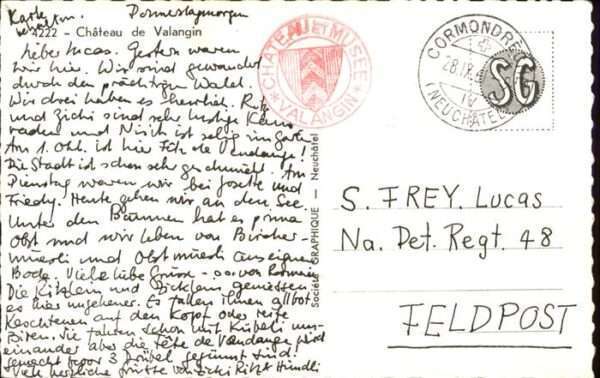 Karte Donnerstagmorgen
4222 - Château de Valangin
liebe Lucas. Gestern waren
wir hier. Wir sind gewandert
durch den prächtigen Wald.
Wir drei haben es herrlich.
und Zicki sind sehr lustige
und ist selig im Garten
Am 1. Okt. ist hier Fête de Vendange!
Die Stadt ist schon sehr geschmückt. Am
Dienstag waren wir bei Josette und
Friedy. Heute gehen wir an den See.
Unter den Bäumen hat es prima
Obst und wir leben von Bircher-
müesli und Obstmüesli aus eigenem
Bode. Viele liebe Grüsse - von
Die Kitzlein und geniessen
es hier ungeheuer. Es fallen ihnen
Keschtenen auf den Kopf oder reife
Biren. Sie fahren schon mit Kübeli um-
einander aber die fête de Vendange wird
gemacht bevor 3 Trübel sind!
Viele herzliche von Zicki Ritzi Hündli
CHÂTEAU ET MUSÉE
VALANGIN
CORMONDRÈ
28.IX.
(NEUCHÂTEL)
SG
Société GRAPHIQUE — Neuchâtel
S. FREY. Lucas
Na. Det. Regt. 48
FELDPOST